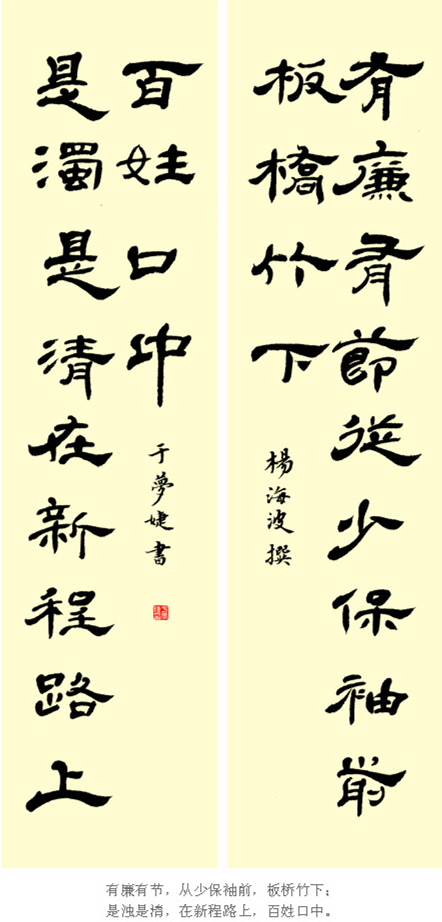 有廉有節從少保袖前
板橋竹下
楊海波撰
是濁是清在新程路上
百姓口中
于夢婕書
有廉有节，从少保袖前，板桥竹下；
是浊是清，在新程路上，百姓口中。